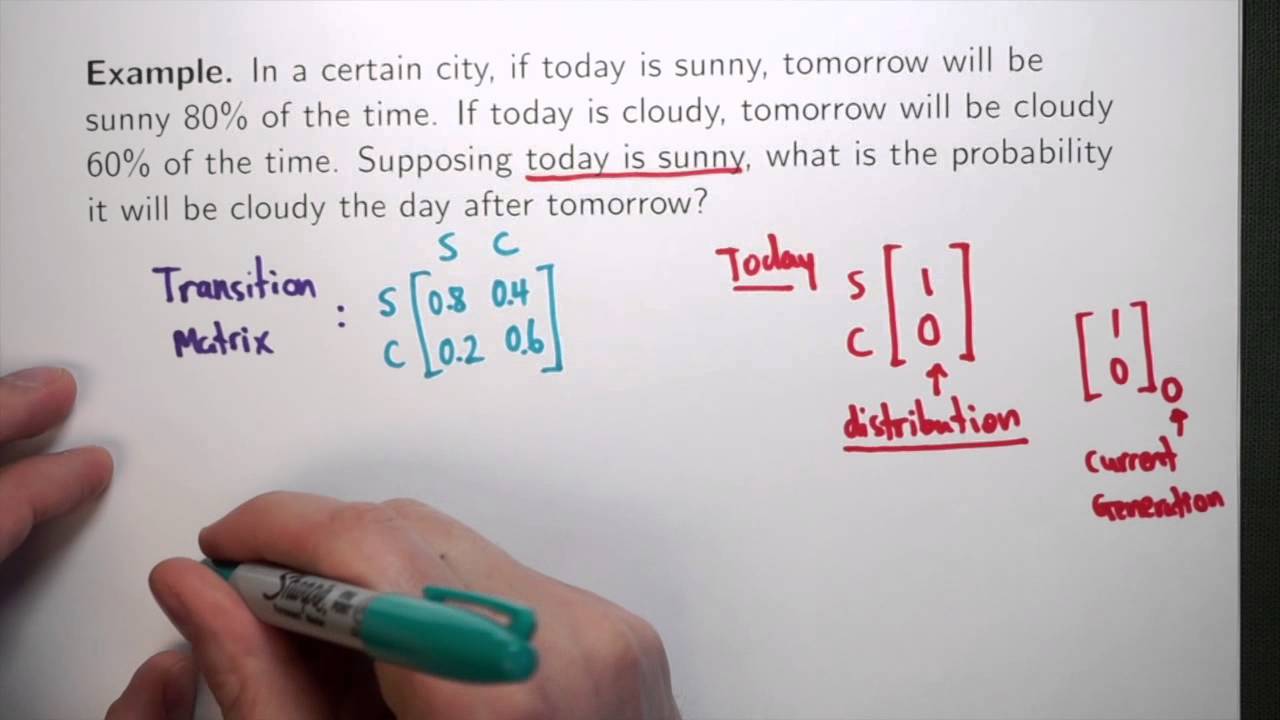 Example. In a certain city, if today is sunny, tomorrow will be
sunny 80% of the time. If today is cloudy, tomorrow will be cloudy
60% of the time. Supposing today is sunny, what is the probability
it will be cloudy the day after tomorrow?
Transition
Matrix
:
S C
S [0.8 0.4]
C [0.2 0.6]
Today
S [1]
C [0]
distribution
[1]
[0]0
Current
Generation
Sharpie